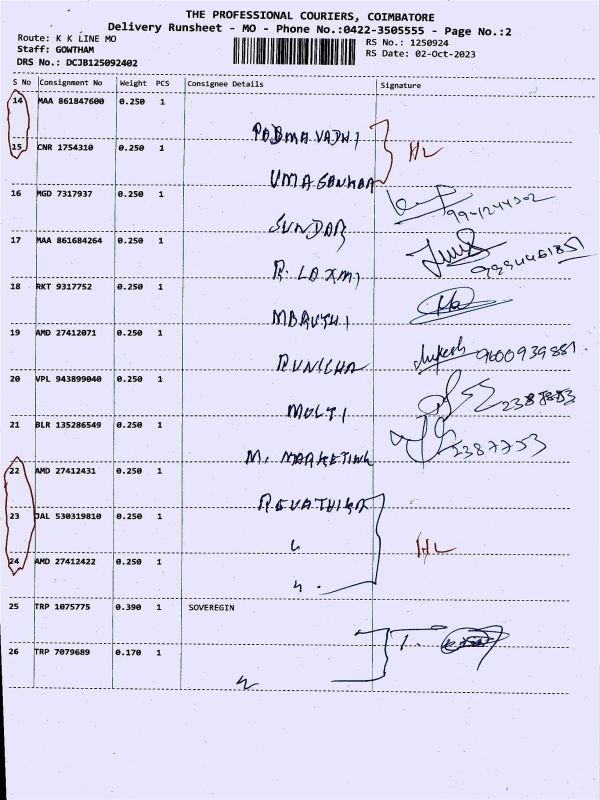 THE PROFESSIONAL COURIERS, COIMBATORE
Delivery Runsheet - MO - Phone No.:0422-3505555 - Page No.:2
Route: K K LINE MO
Staff: GOWTHAM
DRS No.: DCJB125092402
RS No.: 1250924
RS Date: 02-Oct-2023
S No Consignment No Weight PCS Consignee Details Signature
14 MAA 861847600 0.250 1
PADMAVATHI
15 CNR 1754310 0.250 1
HL
16 MGD 7317937 0.250 1
SUNDAR
17 MAA 861684264 0.250 1
R. LAXMI
18 RKT 9317752 0.250 1
MARUTHI
19 AMD 27412071 0.250 1
9600939881.
20 VPL 943899040 0.250 1
MULTI
21 BLR 135286549 0.250 1
M. MARKETING 2387753
22 AMD 27412431 0.250 1
REVATHIKA
23 JAL 530319810 0.250 1
"
HL
24 AMD 27412422 0.250 1
"
25 TRP 1075775 0.390 1 SOVEREGIN
T.
26 TRP 7079689 0.170 1
"